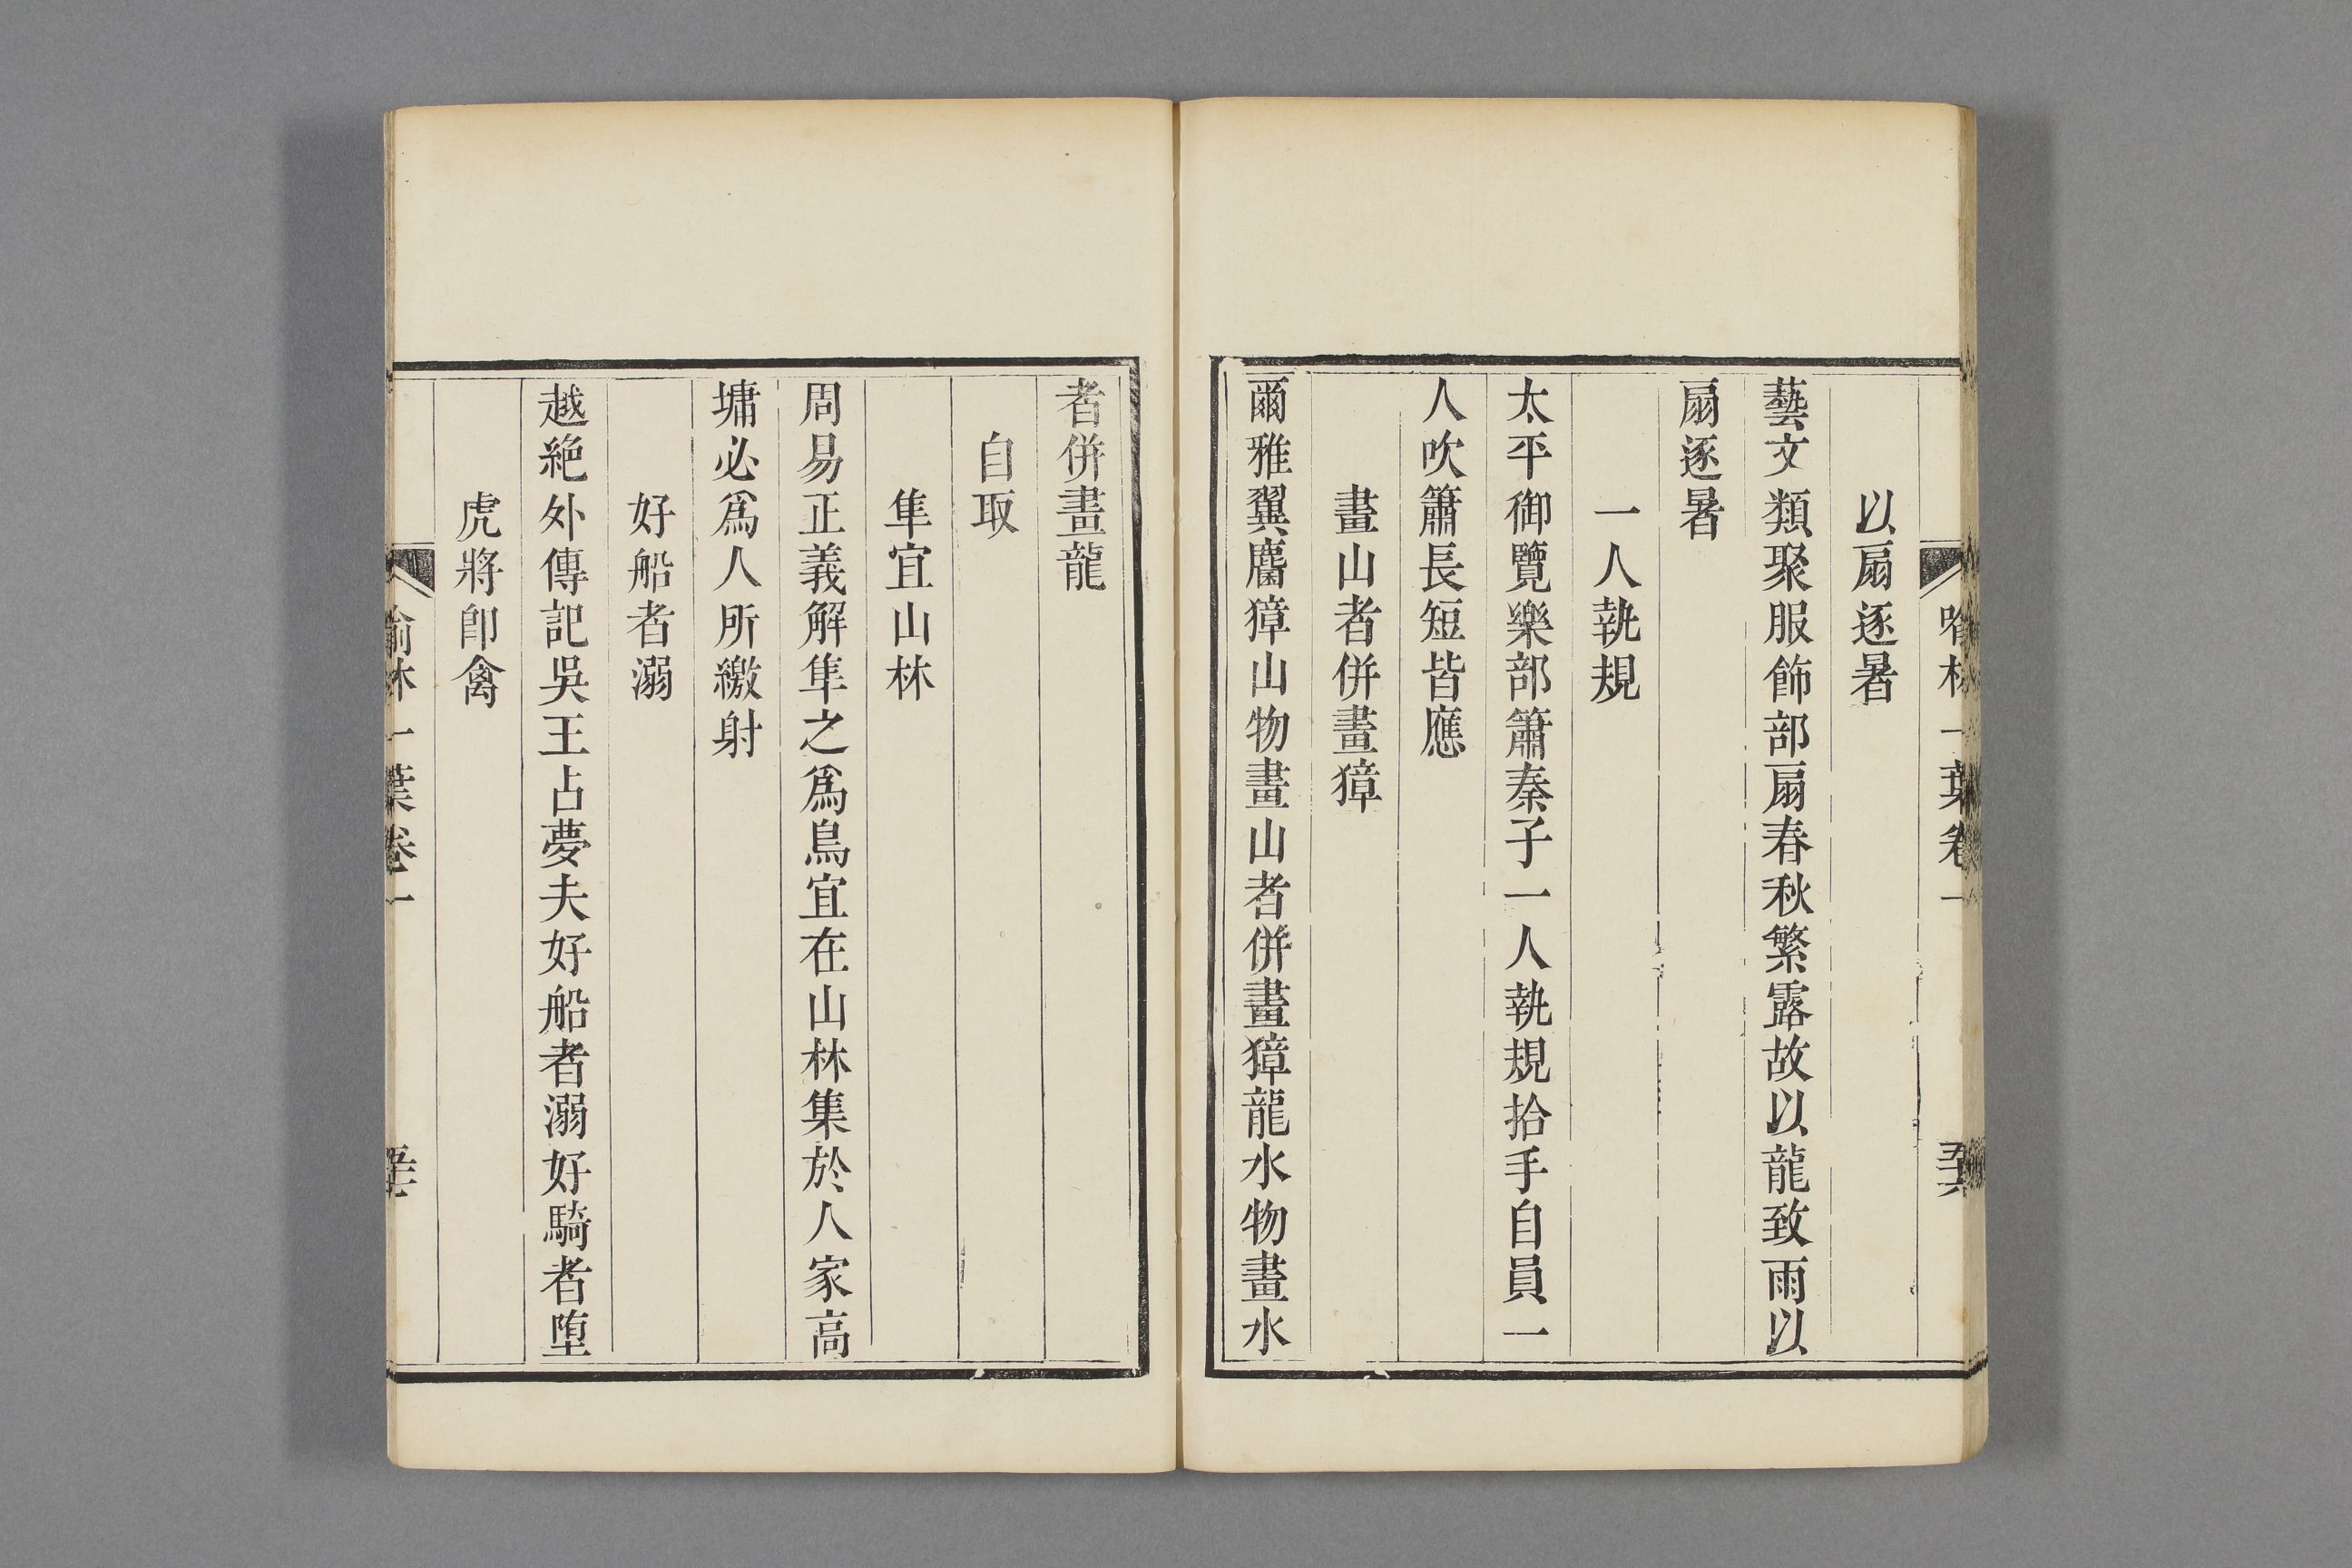 喻林一葉卷一
以扇逐暑
藝文類聚服飾部扇春秋繁露故以龍致雨以
扇逐暑
一人執規
太平御覽樂部簫秦子一人執規拾手自員一
人吹簫長短皆應
畫山者併畫獐
爾雅翼麕獐山物畫山者併畫獐龍水物畫水
者併畫龍
自取
隼宜山林
周易正義解隼之爲鳥宜在山林集於人家高
墉必爲人所繳射
好船者溺
越絶外傳記吳王占夢夫好船者溺好騎者墮
虎將卽禽
喻林一葉卷一